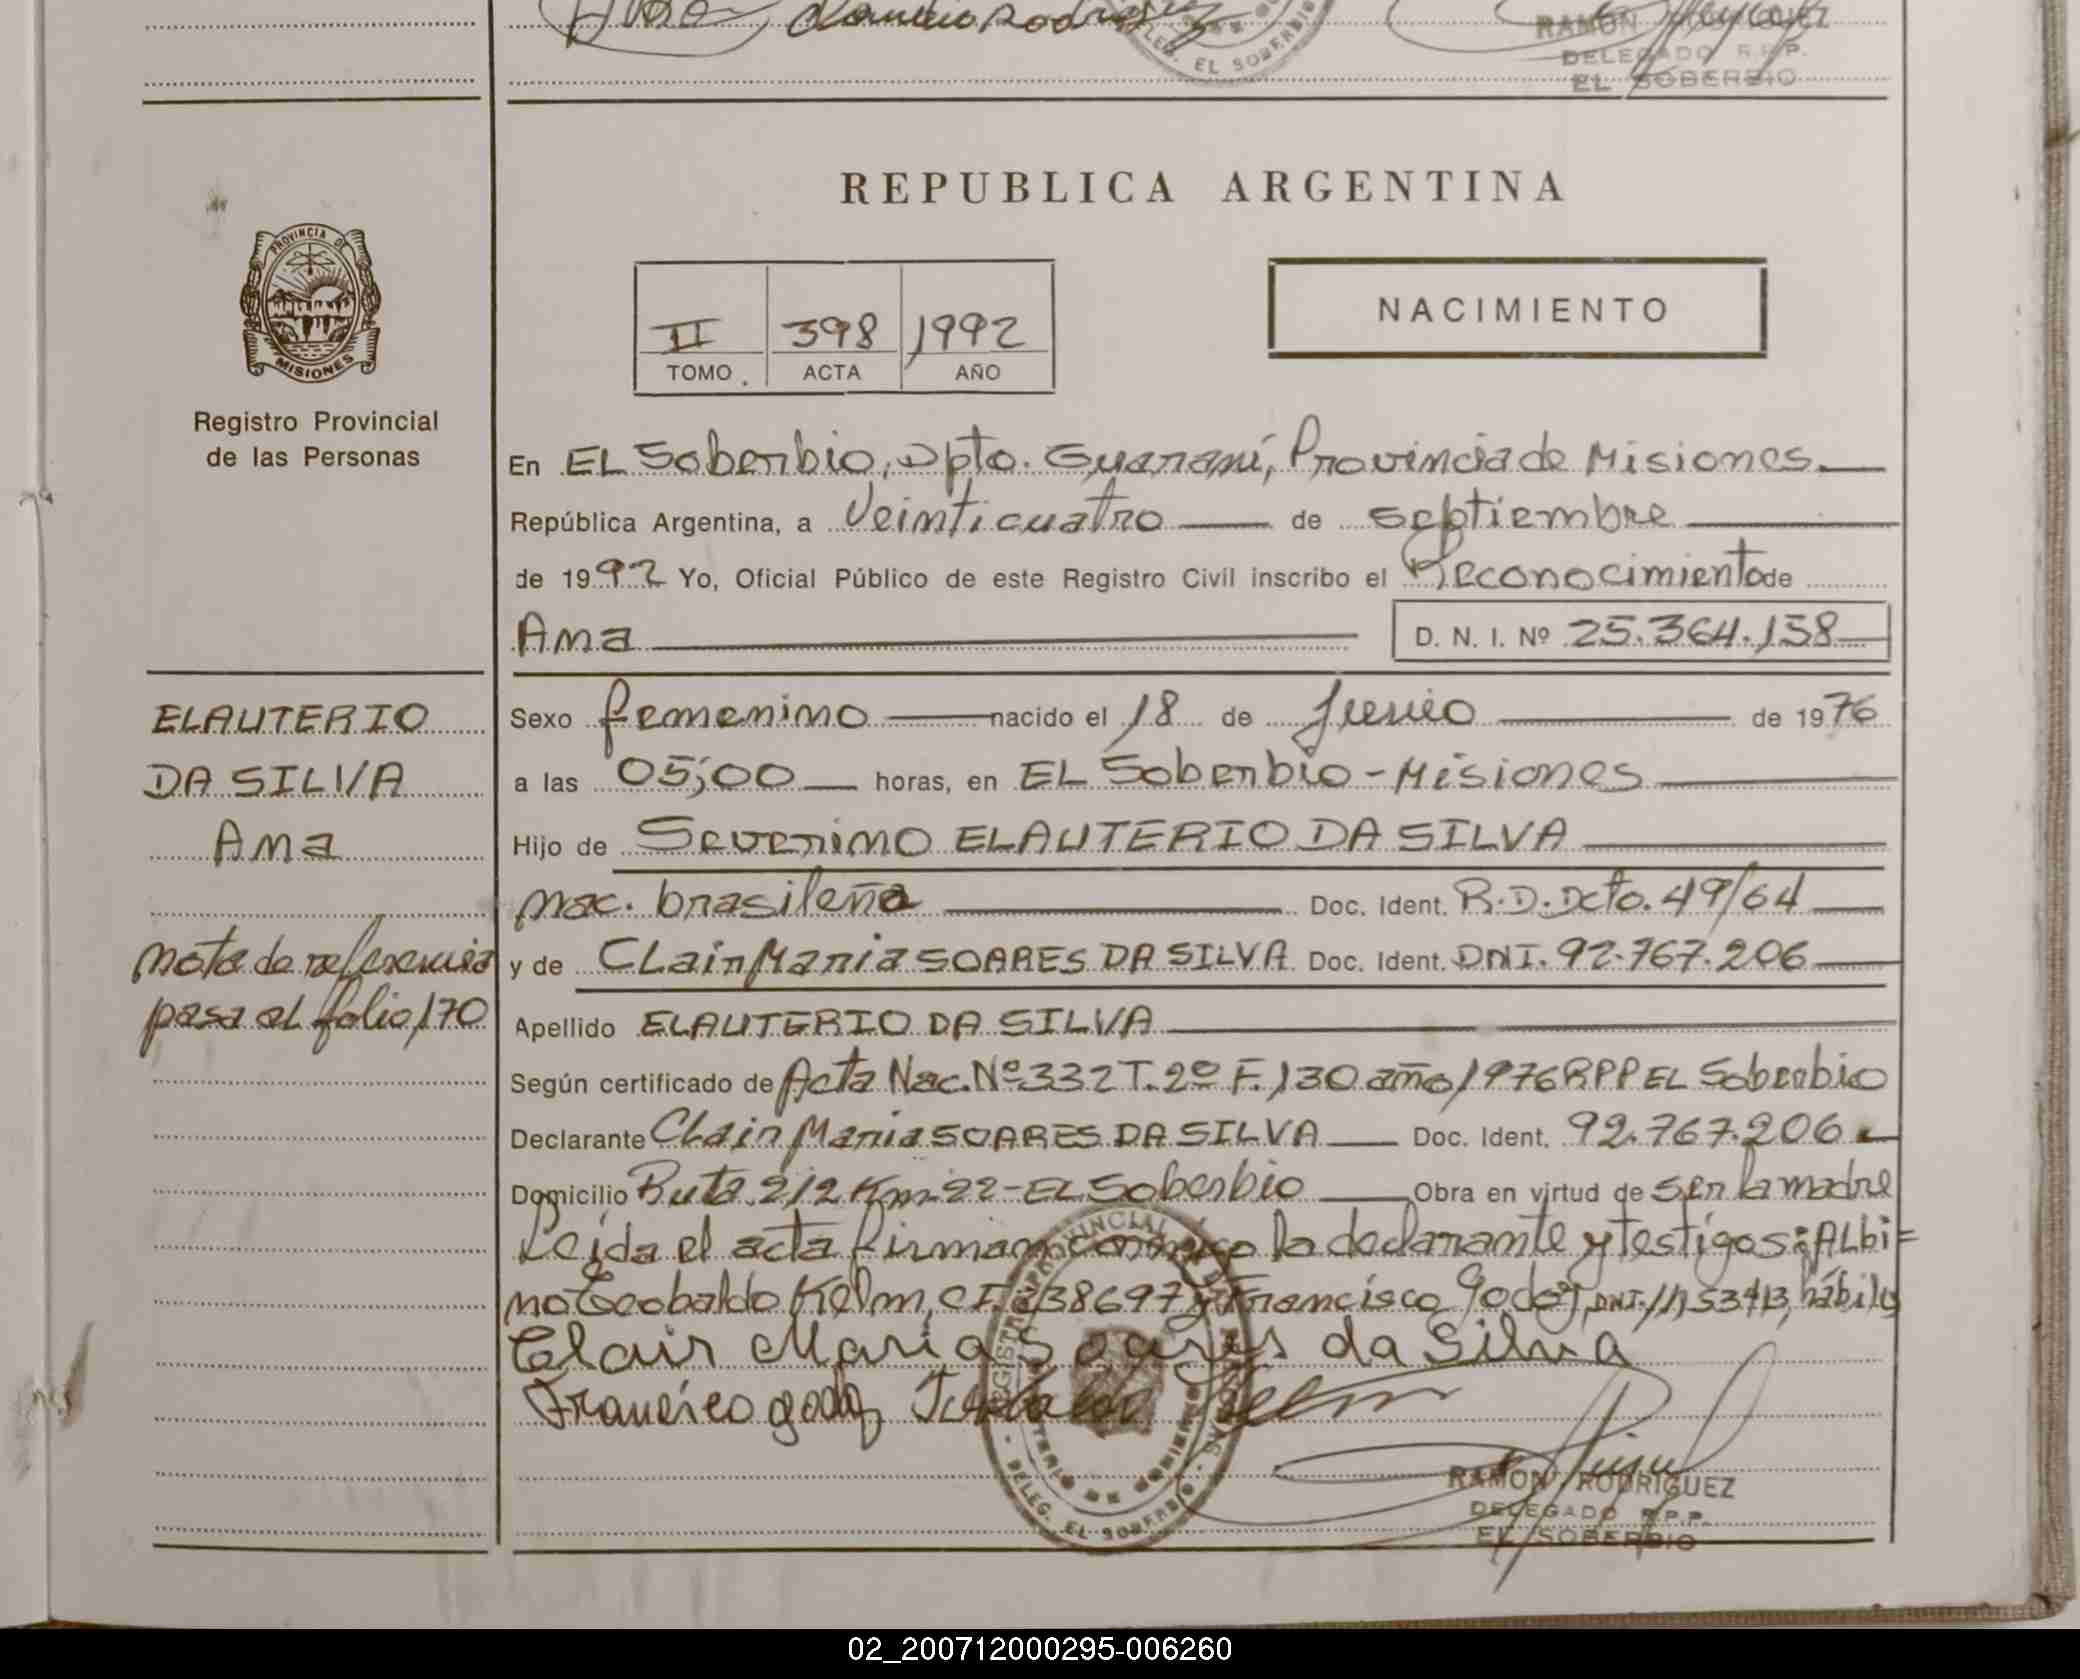 RAMON RODRIGUEZ
DELEGADO R.P.P.
DELEG. EL SOBERBIO
EL SOBERBIO
REPUBLICA ARGENTINA
PROVINCIA DE
MISIONES
Registro Provincial
de las Personas
II 398 1992
TOMO ACTA AÑO
NACIMIENTO
En EL Soberbio, Dpto. Guaraní, Provincia de Misiones
República Argentina, a Veinticuatro de septiembre
de 1992 Yo, Oficial Público de este Registro Civil inscribo el Reconocimiento de
Ana D. N. I. Nº 25.364.158
ELAUTERIO
DA SILVA
Ana
nota de referencia
pasa al folio 170
Sexo femenino nacido el 18 de Junio de 1976
a las 05;00 horas, en EL Soberbio - Misiones
Hijo de Severino ELAUTERIO DA SILVA
nac. brasileña Doc. Ident. R.D. Dcto. 49/64
y de CLair Maria SOARES DA SILVA Doc. Ident. DNI. 92.767.206
Apellido ELAUTERIO DA SILVA
Según certificado de Acta Nac. Nº 332 T. 2º F. 130 año 1976 RPP EL Soberbio
Declarante CLair Maria SOARES DA SILVA Doc. Ident. 92.767.206
Domicilio Ruta 212 Km 22 - EL Soberbio Obra en virtud de ser la madre
Leída el acta firman conmigo la declarante y testigos: ALbi=
no Teobaldo Kelm, CI. 238697 y Francisco Godoy, DNI. 11153413, hábiles
Clair Maria Soares da Silva
Francisco godoy
REGISTRO PROVINCIAL DE LAS PERSONAS
DELEG. EL SOBERBIO
RAMON RODRIGUEZ
DELEGADO R.P.P.
EL SOBERBIO
02_200712000295-006260